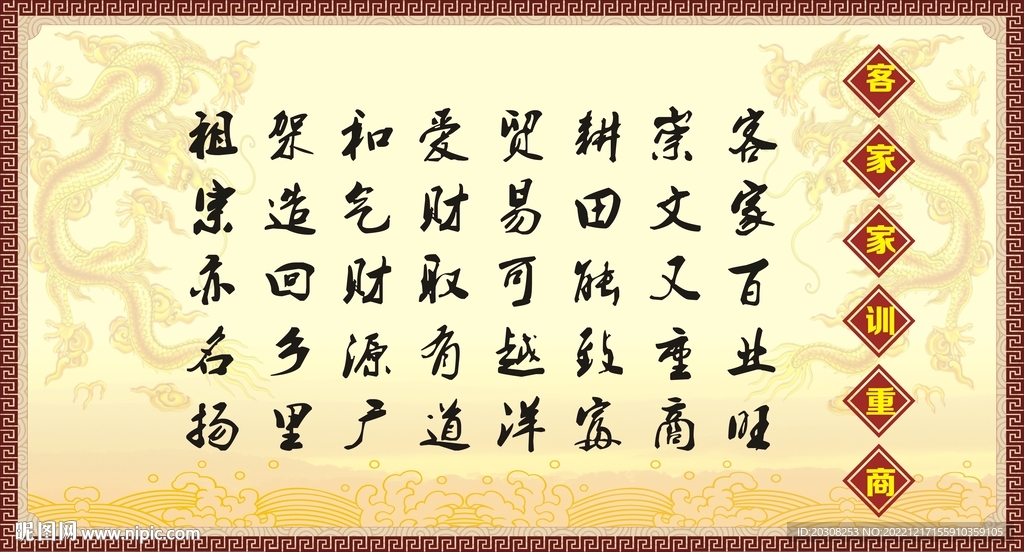 客家家训重商
客家百业旺
崇文又重商
耕田能致富
贸易可越洋
爱财取有道
和气财源广
架造回乡里
祖宗亦名扬
昵图网 www.nipic.com
ID:20308253 NO:20221217155910359105